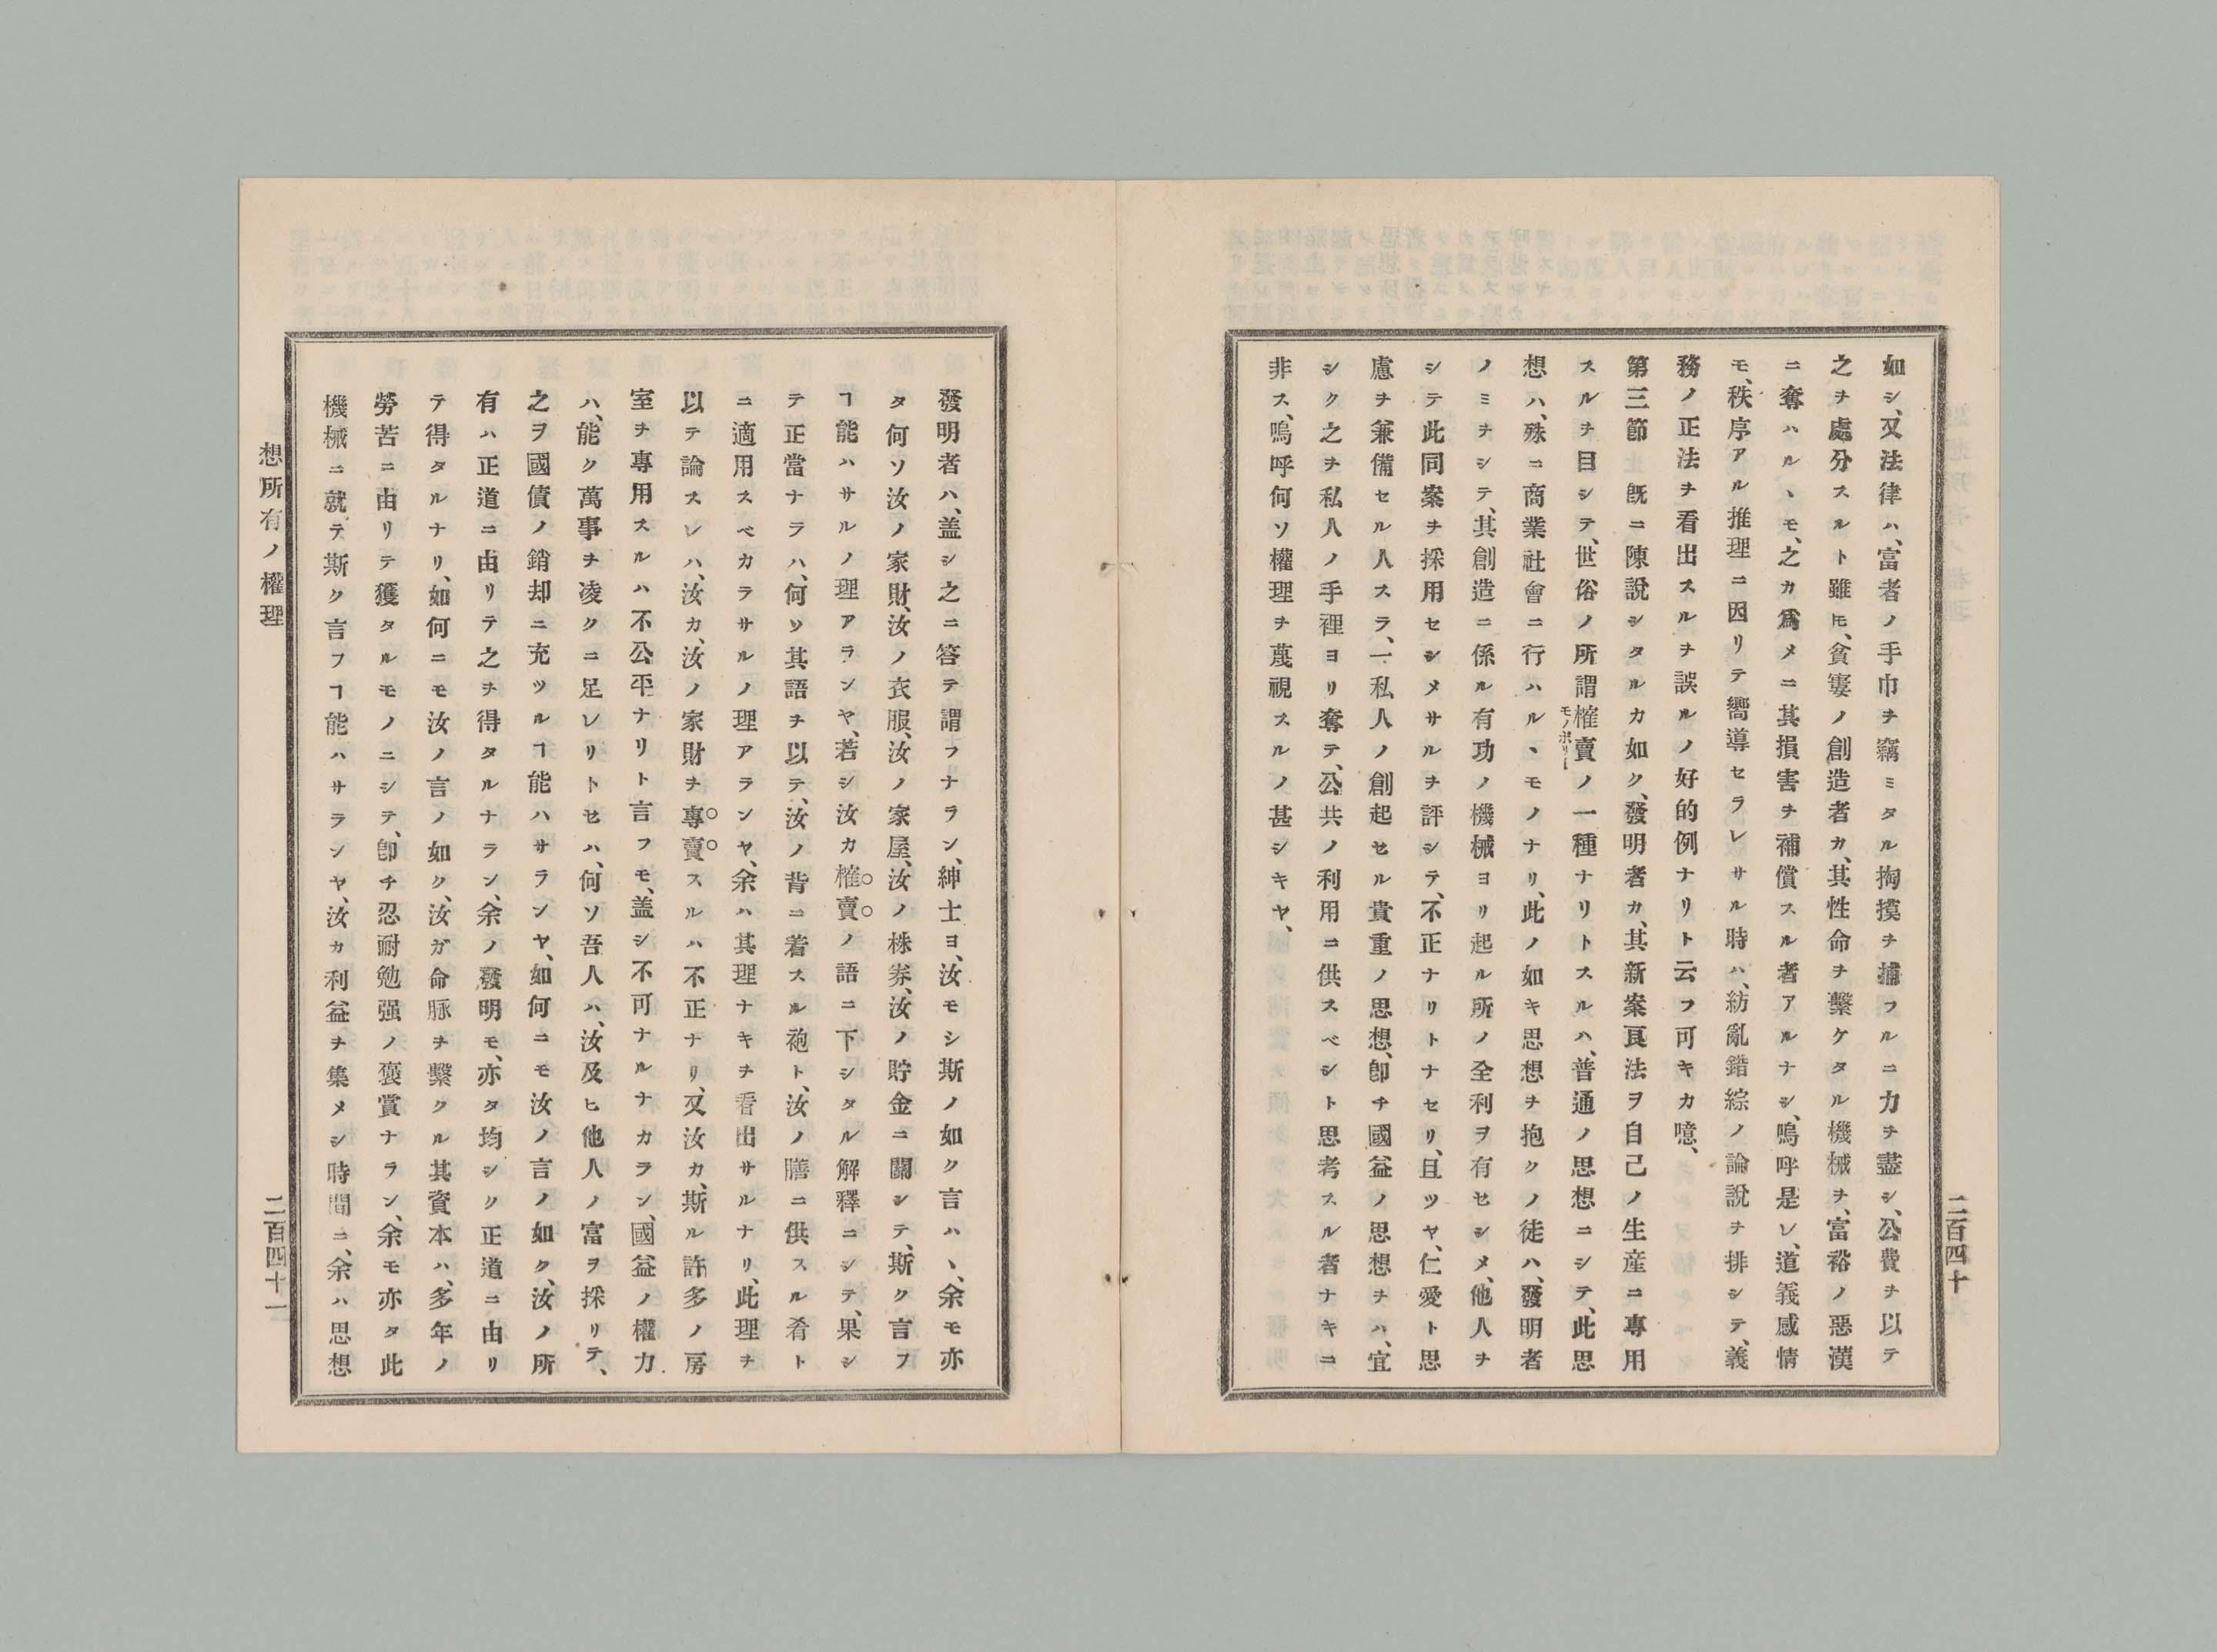 如シ、又法律ハ、富者ノ手巾ヲ竊ミタル掏摸ヲ捕フルニ力ヲ盡シ、公費ヲ以テ
之ヲ處分スルト雖𪜈、貧寠ノ創造者カ、其性命ヲ繫ケタル機械ヲ、富裕ノ惡漢
ニ奪ハルヽモ、之カ爲メニ其損害ヲ補償スル者アルナシ、嗚呼是レ、道義感情
モ、秩序アル推理ニ因リテ嚮導セラレサル時ハ、紛亂錯綜ノ論說ヲ排シテ、義
務ノ正法ヲ看出スルヲ誤ルノ好的例ナリト云フ可キカ噫、
第三節 旣ニ陳說シタルカ如ク、發明者カ、其新案良法ヲ自己ノ生産ニ專用
スルヲ目シテ、世俗ノ所謂榷賣ノ一種ナリトスルハ、普通ノ思想ニシテ、此思
モノポリー
想ハ、殊ニ商業社會ニ行ハルヽモノナリ、此ノ如キ思想ヲ抱クノ徒ハ、發明者
ノミヲシテ、其創造ニ係ル有功ノ機械ヨリ起ル所ノ全利ヲ有セシメ、他人ヲ
シテ此同案ヲ採用セシメサルヲ評シテ、不正ナリトナセリ、且ツヤ、仁愛ト思
慮ヲ兼備セル人スラ、一私人ノ創起セル貴重ノ思想、卽チ國益ノ思想ヲハ、宜
シク之ヲ私人ノ手裡ヨリ奪テ、公共ノ利用ニ供スベシト思考スル者ナキニ
非ス、嗚呼何ソ權理ヲ蔑視スルノ甚シキヤ、
二百四十
發明者ハ、盖シ之ニ答テ謂フナラン、紳士ヨ、汝モシ斯ノ如ク言ハヽ、余モ亦
タ何ソ汝ノ家財、汝ノ衣服、汝ノ家屋、汝ノ株券、汝ノ貯金ニ關シテ、斯ク言フ
ヿ能ハサルノ理アランヤ、若シ汝カ榷賣ノ語ニ下シタル解釋ニシテ、果シ
テ正當ナラハ、何ソ其語ヲ以テ、汝ノ背ニ着スル袍ト、汝ノ膳ニ供スル肴ト
ニ適用スベカラサルノ理アランヤ、余ハ其理ナキヲ看出サルナリ、此理ヲ
以テ論スレハ、汝カ、汝ノ家財ヲ專賣スルハ不正ナリ、又汝カ、斯ル許多ノ房
室ヲ專用スルハ不公平ナリト言フモ、盖シ不可ナルナカラン、國益ノ權力
ハ、能ク萬事ヲ凌クニ足レリトセハ、何ソ吾人ハ、汝及ヒ他人ノ富ヲ採リテ、
之ヲ國債ノ銷却ニ充ツルヿ能ハサランヤ、如何ニモ汝ノ言ノ如ク、汝ノ所
有ハ正道ニ由リテ之ヲ得タルナラン、余ノ發明モ、亦タ均シク正道ニ由リ
テ得タルナリ、如何ニモ汝ノ言ノ如ク、汝ガ命脉ヲ繫クル其資本ハ、多年ノ
勞苦ニ由リテ獲タルモノニシテ、卽チ忍耐勉强ノ褒賞ナラン、余モ亦タ此
機械ニ就テ斯ク言フヿ能ハサランヤ、汝カ利益ヲ集メシ時間ニ、余ハ思想
想所有ノ權理
二百四十一